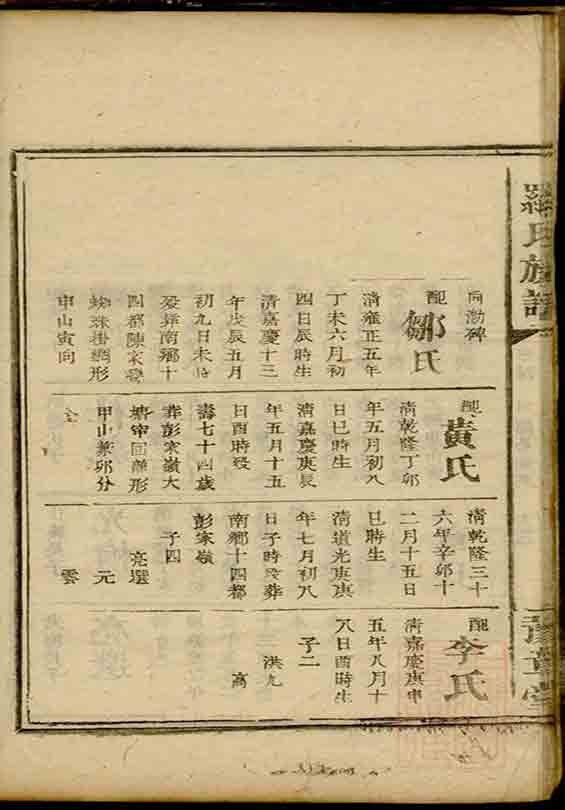 羅氏族譜
豫章堂
向勒碑
配鄒氏
清雍正五年
丁未六月初
四日辰時生
清嘉慶十三
年戊辰五月
初九日未時
歿葬南鄉十
四都陳家灣
蜘蛛掛網形
申山寅向
配黃氏
清乾隆丁卯
年五月初八
日巳時生
清嘉慶庚辰
年五月十五
日酉時歿
壽七十四歲
葬彭家嶺大
塘 回龍形
甲山兼卯分
金
清乾隆三十
六年辛卯十
二月十五日
巳時生
清道光庚
年七月初八
日子時歿葬
南鄉十四都
彭家嶺
子四
亮選
元
雲
配李氏
清嘉慶庚申
五年八月十
八日酉時生
子二
洪九
高